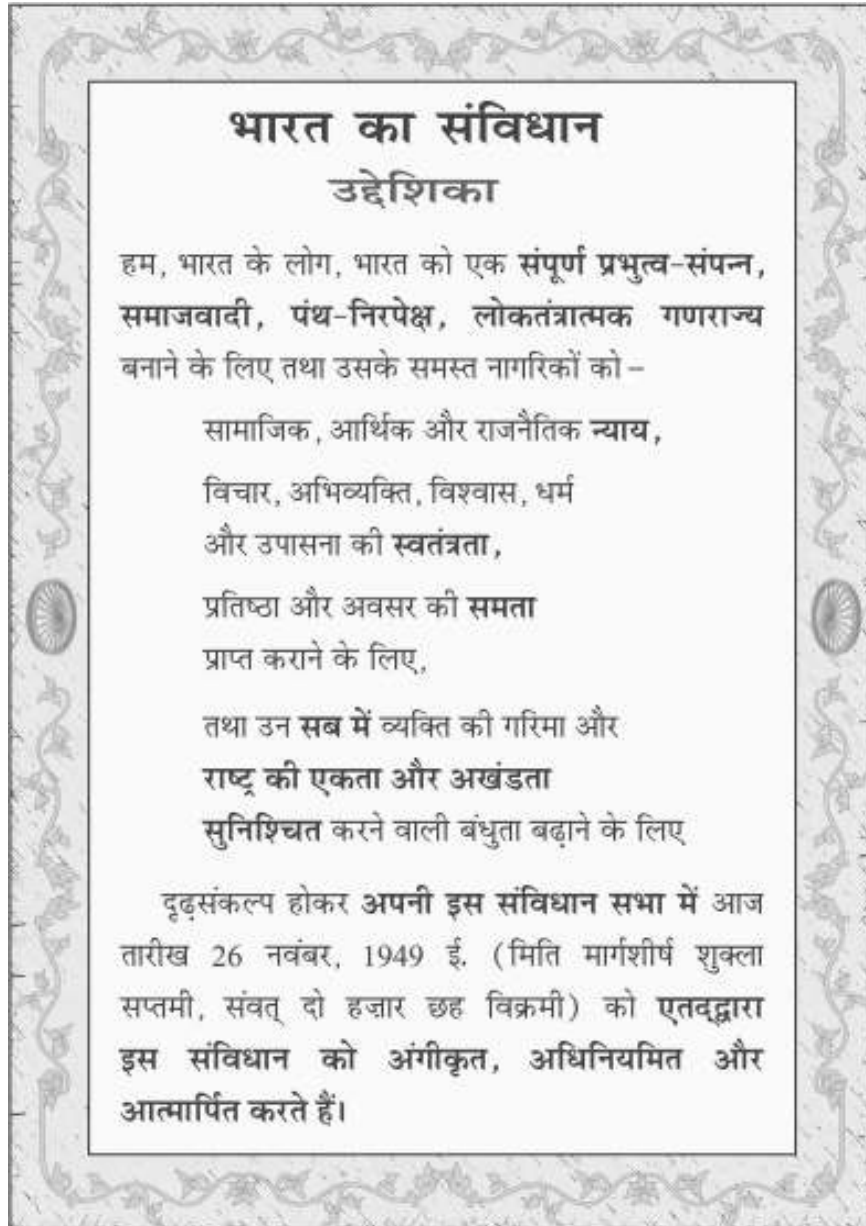 भारत का संविधान
उद्देशिका
हम, भारत के लोग, भारत को एक संपूर्ण प्रभुत्व-संपन्न,
समाजवादी, पंथ-निरपेक्ष, लोकतंत्रात्मक गणराज्य
बनाने के लिए तथा उसके समस्त नागरिकों को –
सामाजिक, आर्थिक और राजनैतिक न्याय,
विचार, अभिव्यक्ति, विश्वास, धर्म
और उपासना की स्वतंत्रता,
प्रतिष्ठा और अवसर की समता
प्राप्त कराने के लिए,
तथा उन सब में व्यक्ति की गरिमा और
राष्ट्र की एकता और अखंडता
सुनिश्चित करने वाली बंधुता बढ़ाने के लिए
दृढ़संकल्प होकर अपनी इस संविधान सभा में आज
तारीख 26 नवंबर, 1949 ई. (मिति मार्गशीर्ष शुक्ला
सप्तमी, संवत् दो हज़ार छह विक्रमी) को एतद्द्वारा
इस संविधान को अंगीकृत, अधिनियमित और
आत्मार्पित करते हैं।